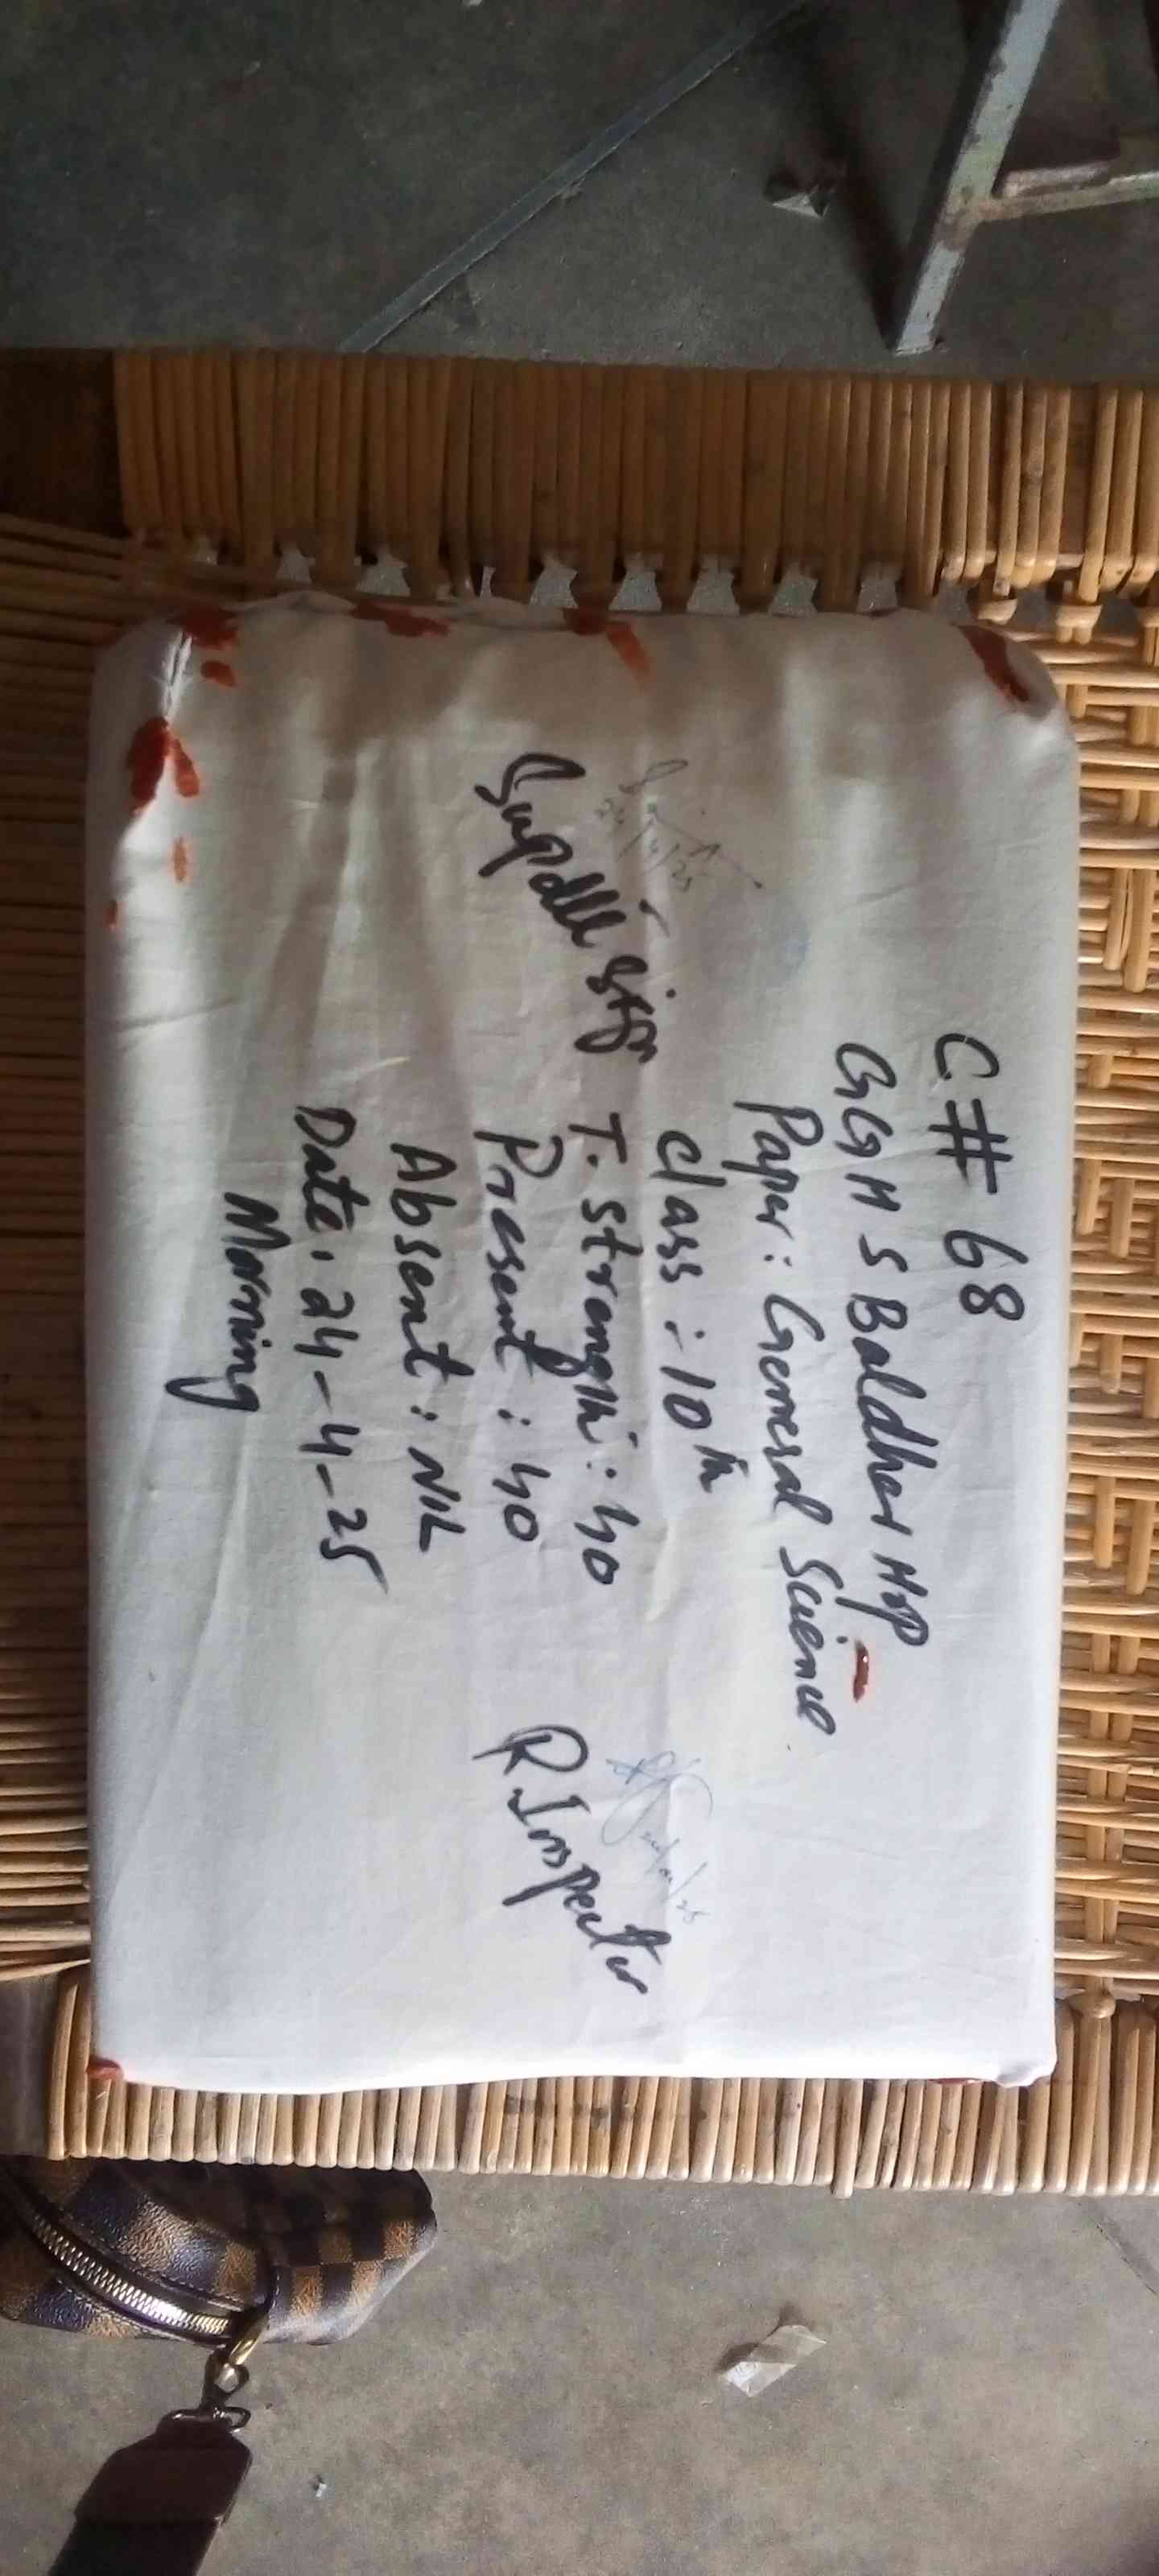 C# 68
GGHS Baldher HrP
Paper: General Science
Class :- 10th
T. Strength: 40
Present : 40
Absent : NIL
Date. 24-4-25
Morning
24/4/25
R. Inspector